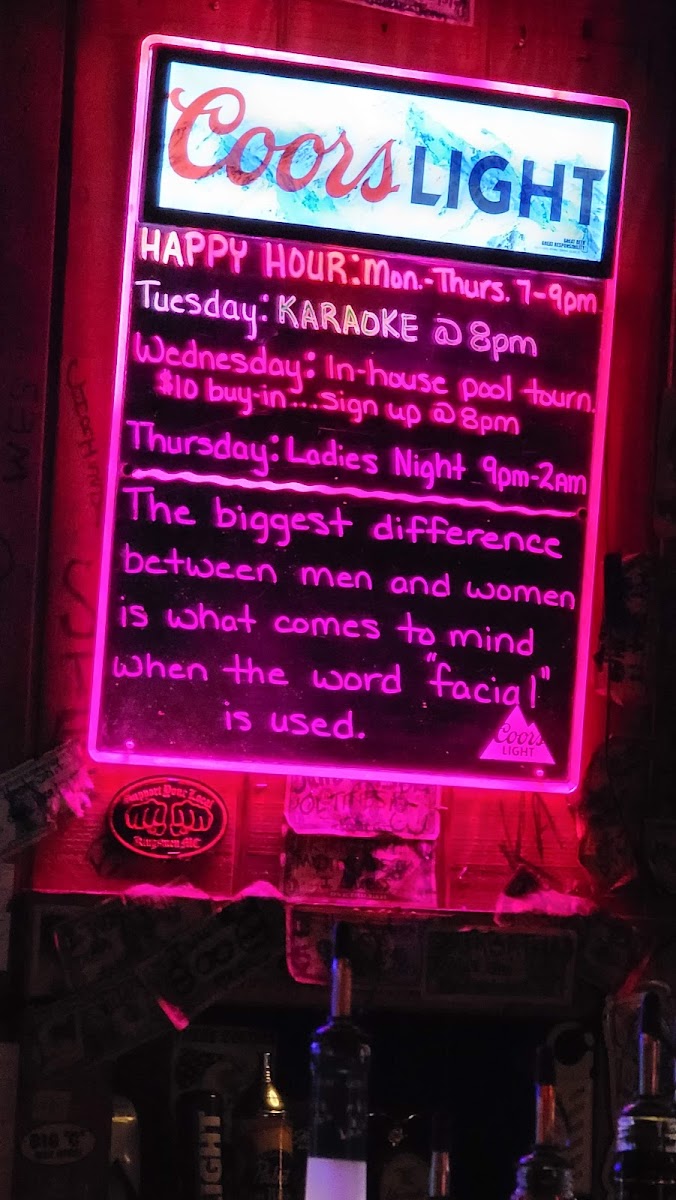 Coors LIGHT
GREAT BEER
GREAT RESPONSIBILITY
HAPPY HOUR: Mon.-Thurs. 7-9pm
Tuesday: KARAOKE @ 8pm
Wednesday: In-house pool tourn.
$10 buy-in...sign up @ 8pm
Thursday: Ladies Night 9pm-2AM
The biggest difference
between men and women
is what comes to mind
when the word "facial"
is used.
Coors
LIGHT
Support Your Local
Kingsmen MC
LIGHT